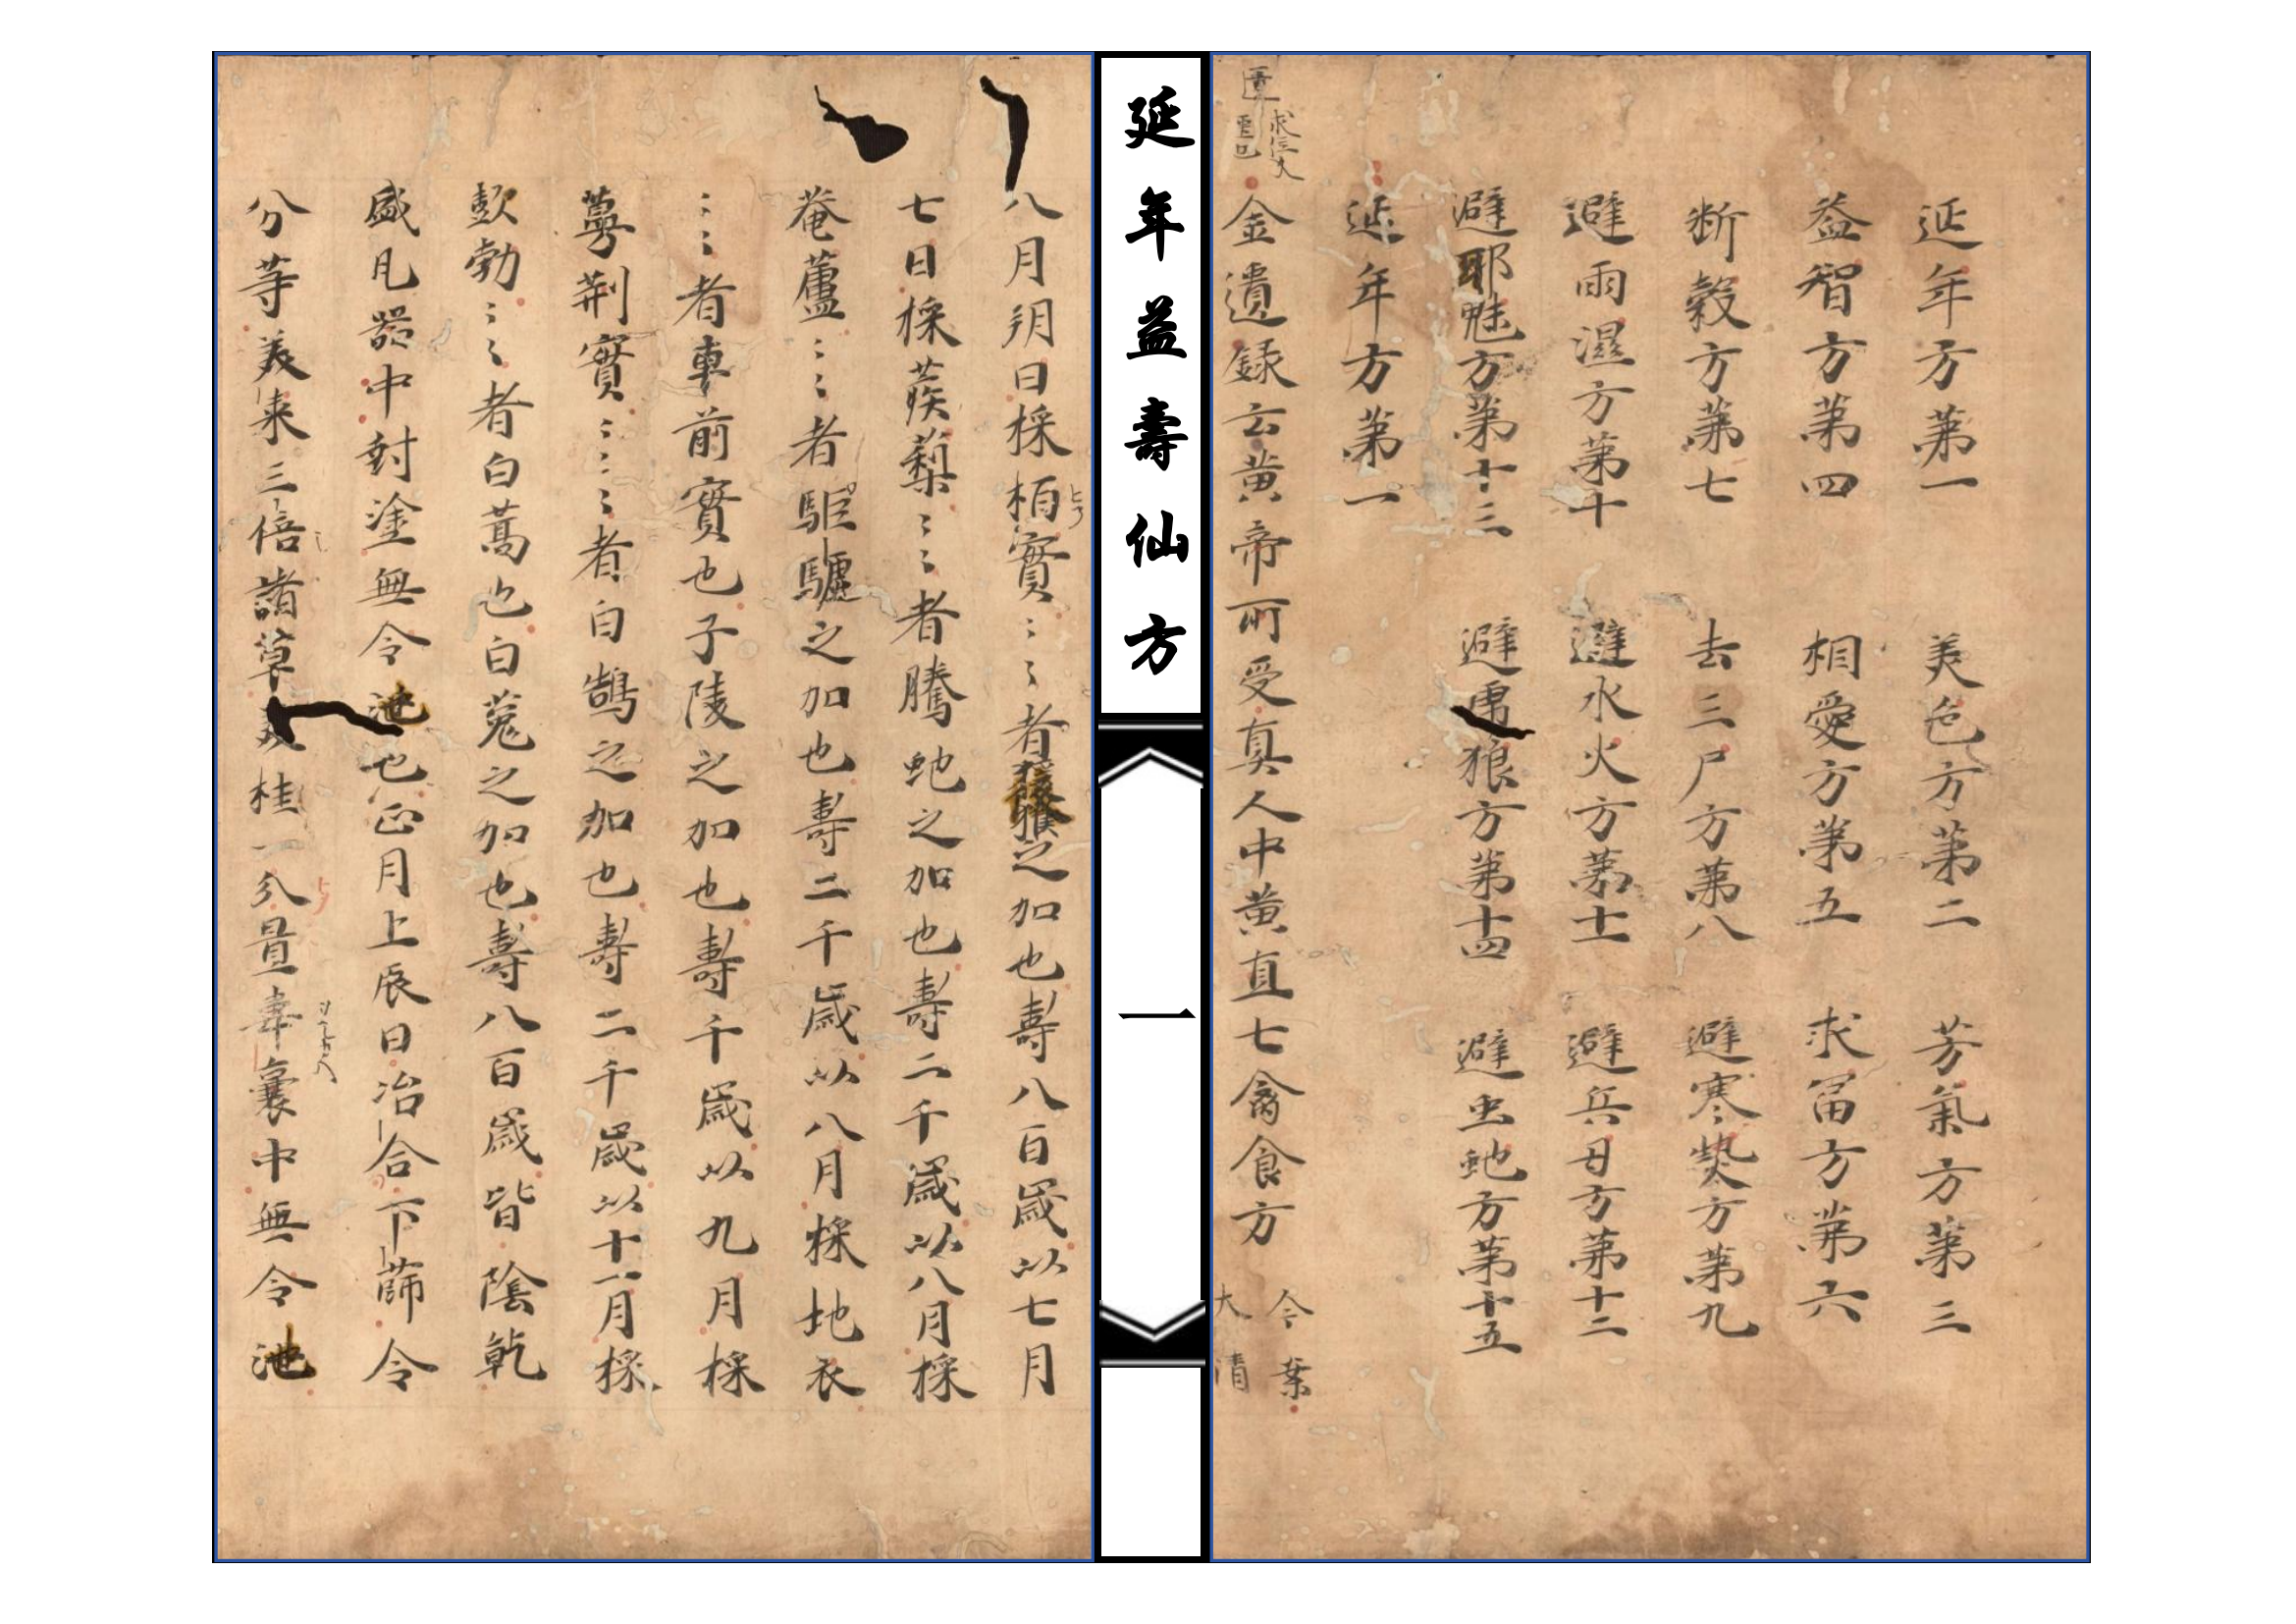 延年方第一　美色方第二　芳氣方第三
益智方第四　相愛方第五　求冨方第六
断穀方第七　去三尸方第八　避寒熱方第九
避雨濕方第十　避水火方第十一　避兵刃方第十二
避耶魅方第十三　避虎狼方第十四　避虫虵方第十五
延年方第一
金遺録云黄帝所受真人中黄直七禽食方　今案
大清
延年益壽仙方
一
八月朔日採栢實〻〻者猨猴之加也壽八百歳以七月
七日採蒺蔾〻〻者騰虵之加也壽二千歳以八月採
菴蘆〻〻者駏驉之加也壽二千歳以八月採地衣
〻〻者車前實也子陵之加也壽千歳以九月採
蔓荆實〻〻〻者白鵠之加也壽二千歳以十一月採
彭勃〻〻者白蒿也白菟之加也壽八百歳皆陰乾
盛凡器中封塗無令泄也正月上辰日冶合下篩令
分等美棗三倍諸草美桂一分置韋囊中無令泄